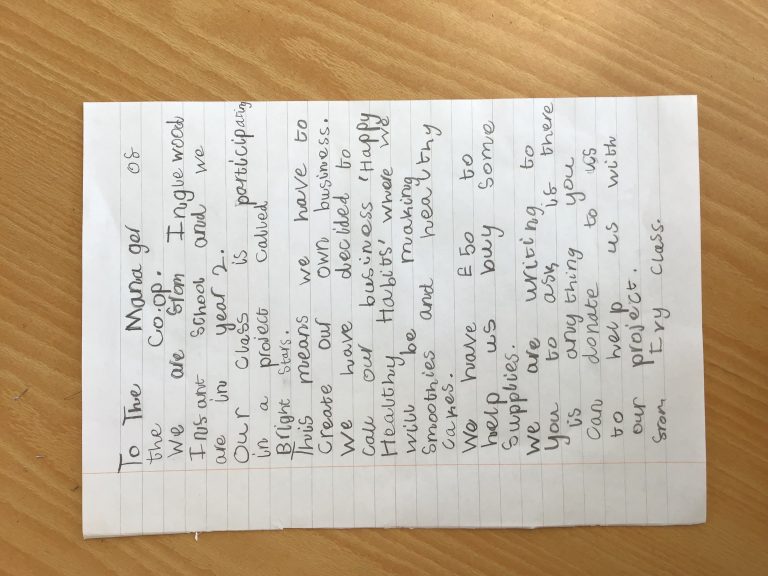 To The Manager of
the Co.op.
We are from Inglewood
Infant School and we
are in year 2.
Our class is participating
in a project called
Bright Stars.
This means we have to
Create our own business.
We have decided to
call our business 'Happy
Healthy Habits' where we
will be making
Smoothies and healthy
Cakes.
We have £50 to
help us buy some
Supplies.
We are writing to
you to ask is there
is anything you
can donate to us
to help us with
our project.
from Ivy class.